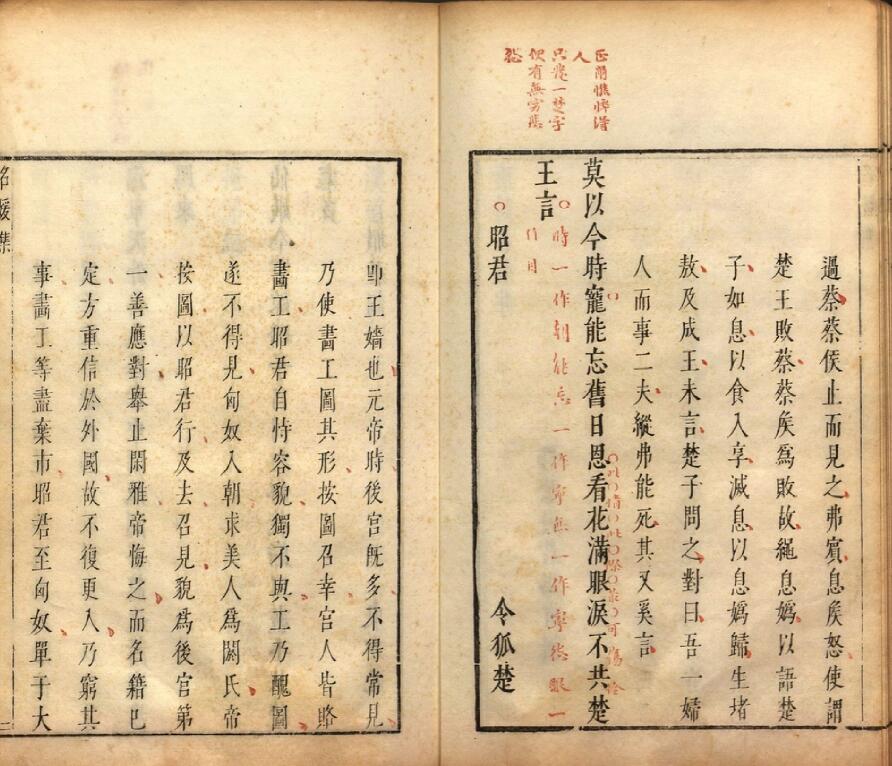 過蔡蔡侯止而見之弗賓息矦怒使謂
楚王敗蔡蔡矦為敗故繩息媯以語楚
子如息以食入享滅息以息媯歸生堵
敖及成王未言楚子問之對曰吾一婦
人而事二夫縱弗能死其又奚言
莫以今時寵能忘舊日恩看花滿眼淚不共楚
王言
時一作朝能忘一作寧無一作寧
眼一作目
昭君
令狐楚
只一楚字
便有無窮
卽王嬙也元帝時後宮旣多不得常見
乃使畫工圖其形按圖召幸宮人皆賂
畫工昭君自恃容貌獨不與工乃醜圖
遂不得見匈奴入朝求美人為閼氏帝
按圖以昭君行及去召見貌為後宮第
一善應對舉止閑雅帝悔之而名籍已
定方重信於外國故不復更入乃窮其
事畫工等盡棄市昭君至匈奴單于大
名媛集